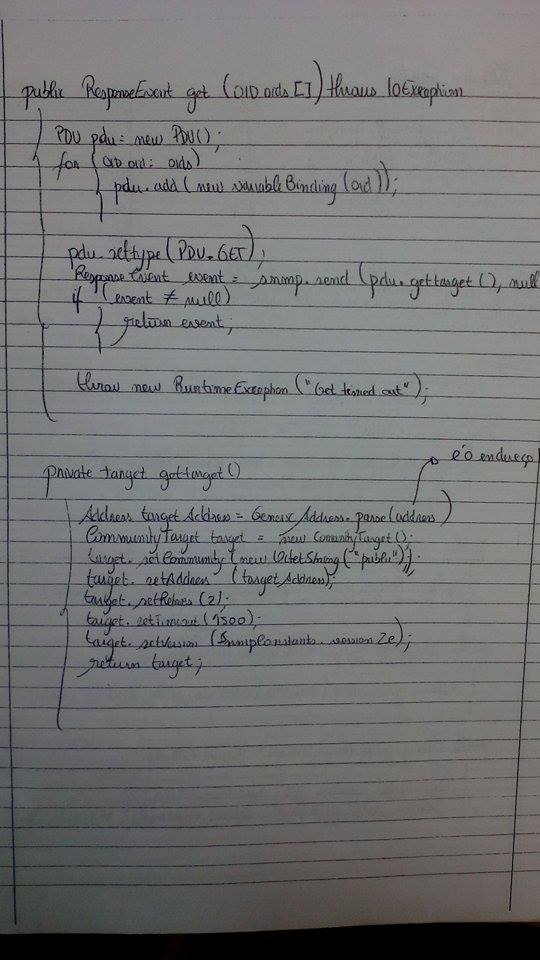 public ResponseEvent get (OID oids []) throws IOException
PDU pdu = new PDU();
for (OID oid : oids)
pdu.add (new variableBinding (oid));
pdu.settype (PDU.GET);
ResponseEvent event = snmp.send (pdu.gettarget (), null
if (event ≠ null)
return event;
throw new RuntimeException ("Get timed out");
é o endereço
private target gettarget ()
Address target Address = Generic Address.parse (address)
CommunityTarget target = new ComunityTarget ();
target.setCommunity (new OctetString ("public"));
target.setAddress (targetAddress);
target.setRetries (2);
target.setTimeout (1500);
target.setVersion (SnmpConstants.version 2c);
return target;